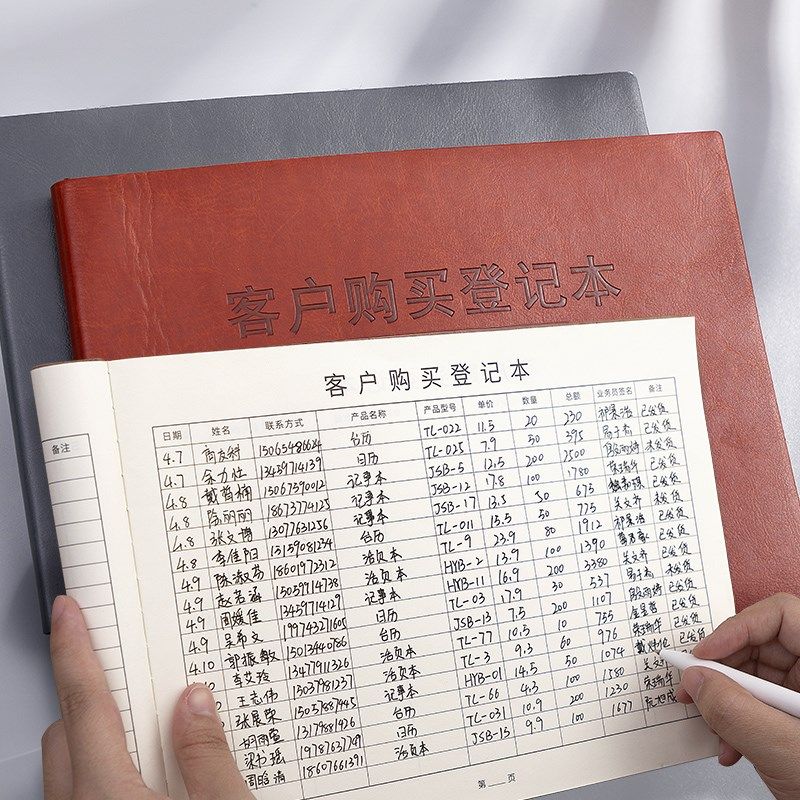 客户购买登记本
客户购买登记本
备注
日期 姓名 联系方式 产品名称 产品型号 单价 数量 总额 业务员签名 备注
4.7 15065486624 台历 TL-022 11.5 20 230 已发货
4.7 13459714139 日历 TL-025 7.9 50 395 已发货
4.8 戴哲楠 15067590012 记事本 JSB-5 12.5 200 2500 未发货
4.8 陈丽丽 18673774125 记事本 JSB-12 17.8 100 1780 已发货
4.8 张文博 13077631256 记事本 JSB-17 13.5 50 675 已发货
4.8 李佳阳 13159081234 台历 TL-011 15.5 50 775 吴文乔 未发货
4.9 陈淑芬 18601972312 活页本 TL-9 23.9 80 1912 已发货
4.9 赵若涵 15059914738 活页本 HYB-2 13.9 100 1390 已发货
4.9 周媛佳 13459714129 记事本 HYB-11 16.9 200 3380 吴文乔 已发货
4.9 吴希文 19974321605 日历 TL-03 17.9 30 537 已发货
4.10 郭振敏 15013440786 台历 JSB-13 7.5 200 1107 已发货
李艾玲 13479911326 活页本 TL-77 10.5 10 755 已发货
王志伟 15037981237 活页本 TL-3 9.3 60 976 已发货
张展荣 15057887445 记事本 HYB-01 14.5 50 1074 已发货
胡雨萱 13179881426 台历 TL-66 4.3 100 1580 吴文乔
梁书瑶 19787637749 日历 TL-031 10.9 200 1230
18607661391 活页本 JSB-15 9.9 100 1677
第 页